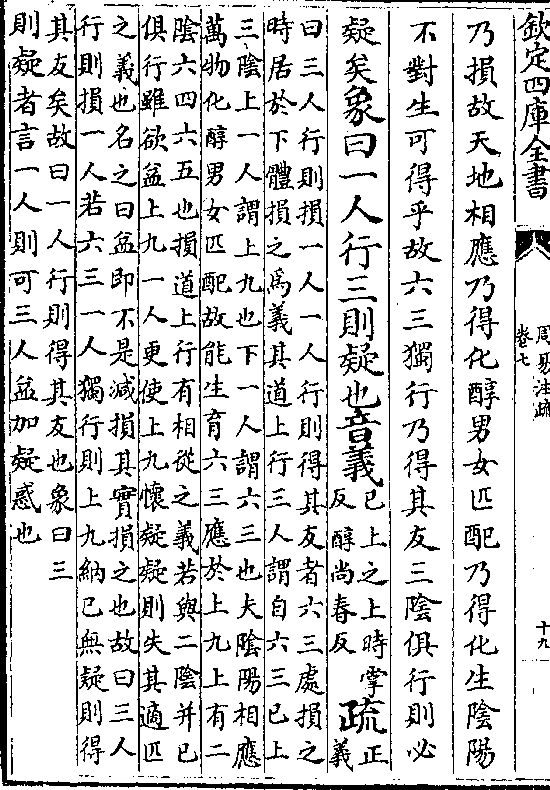 欽定四庫全書
周易注疏
卷七
十九
乃損故天地相應乃得化醇男女匹配乃得化生陰陽
不對生可得乎故六三獨行乃得其友三陰俱行則必
疑矣象曰一人行三則疑也音義
已上之上時掌
反醇尚春反
疏
正
義
曰三人行則損一人一人行則得其友者六三處損之
時居於下體損之爲義其道上行三人謂自六三已上
三陰上一人謂上九也下一人謂六三也夫陰陽相應
萬物化醇男女匹配故能生育六三應於上九上有二
陰六四六五也損道上行有相從之義若與二陰并已
俱行雖欲益上九一人更使上九懷疑疑則失其適匹
之義也名之曰益即不是减損其實損之也故曰三人
行則損一人若六三一人獨行則上九納已無疑則得
其友矣故曰一人行則得其友也象曰三
則疑者言一人則可三人益加疑惑也